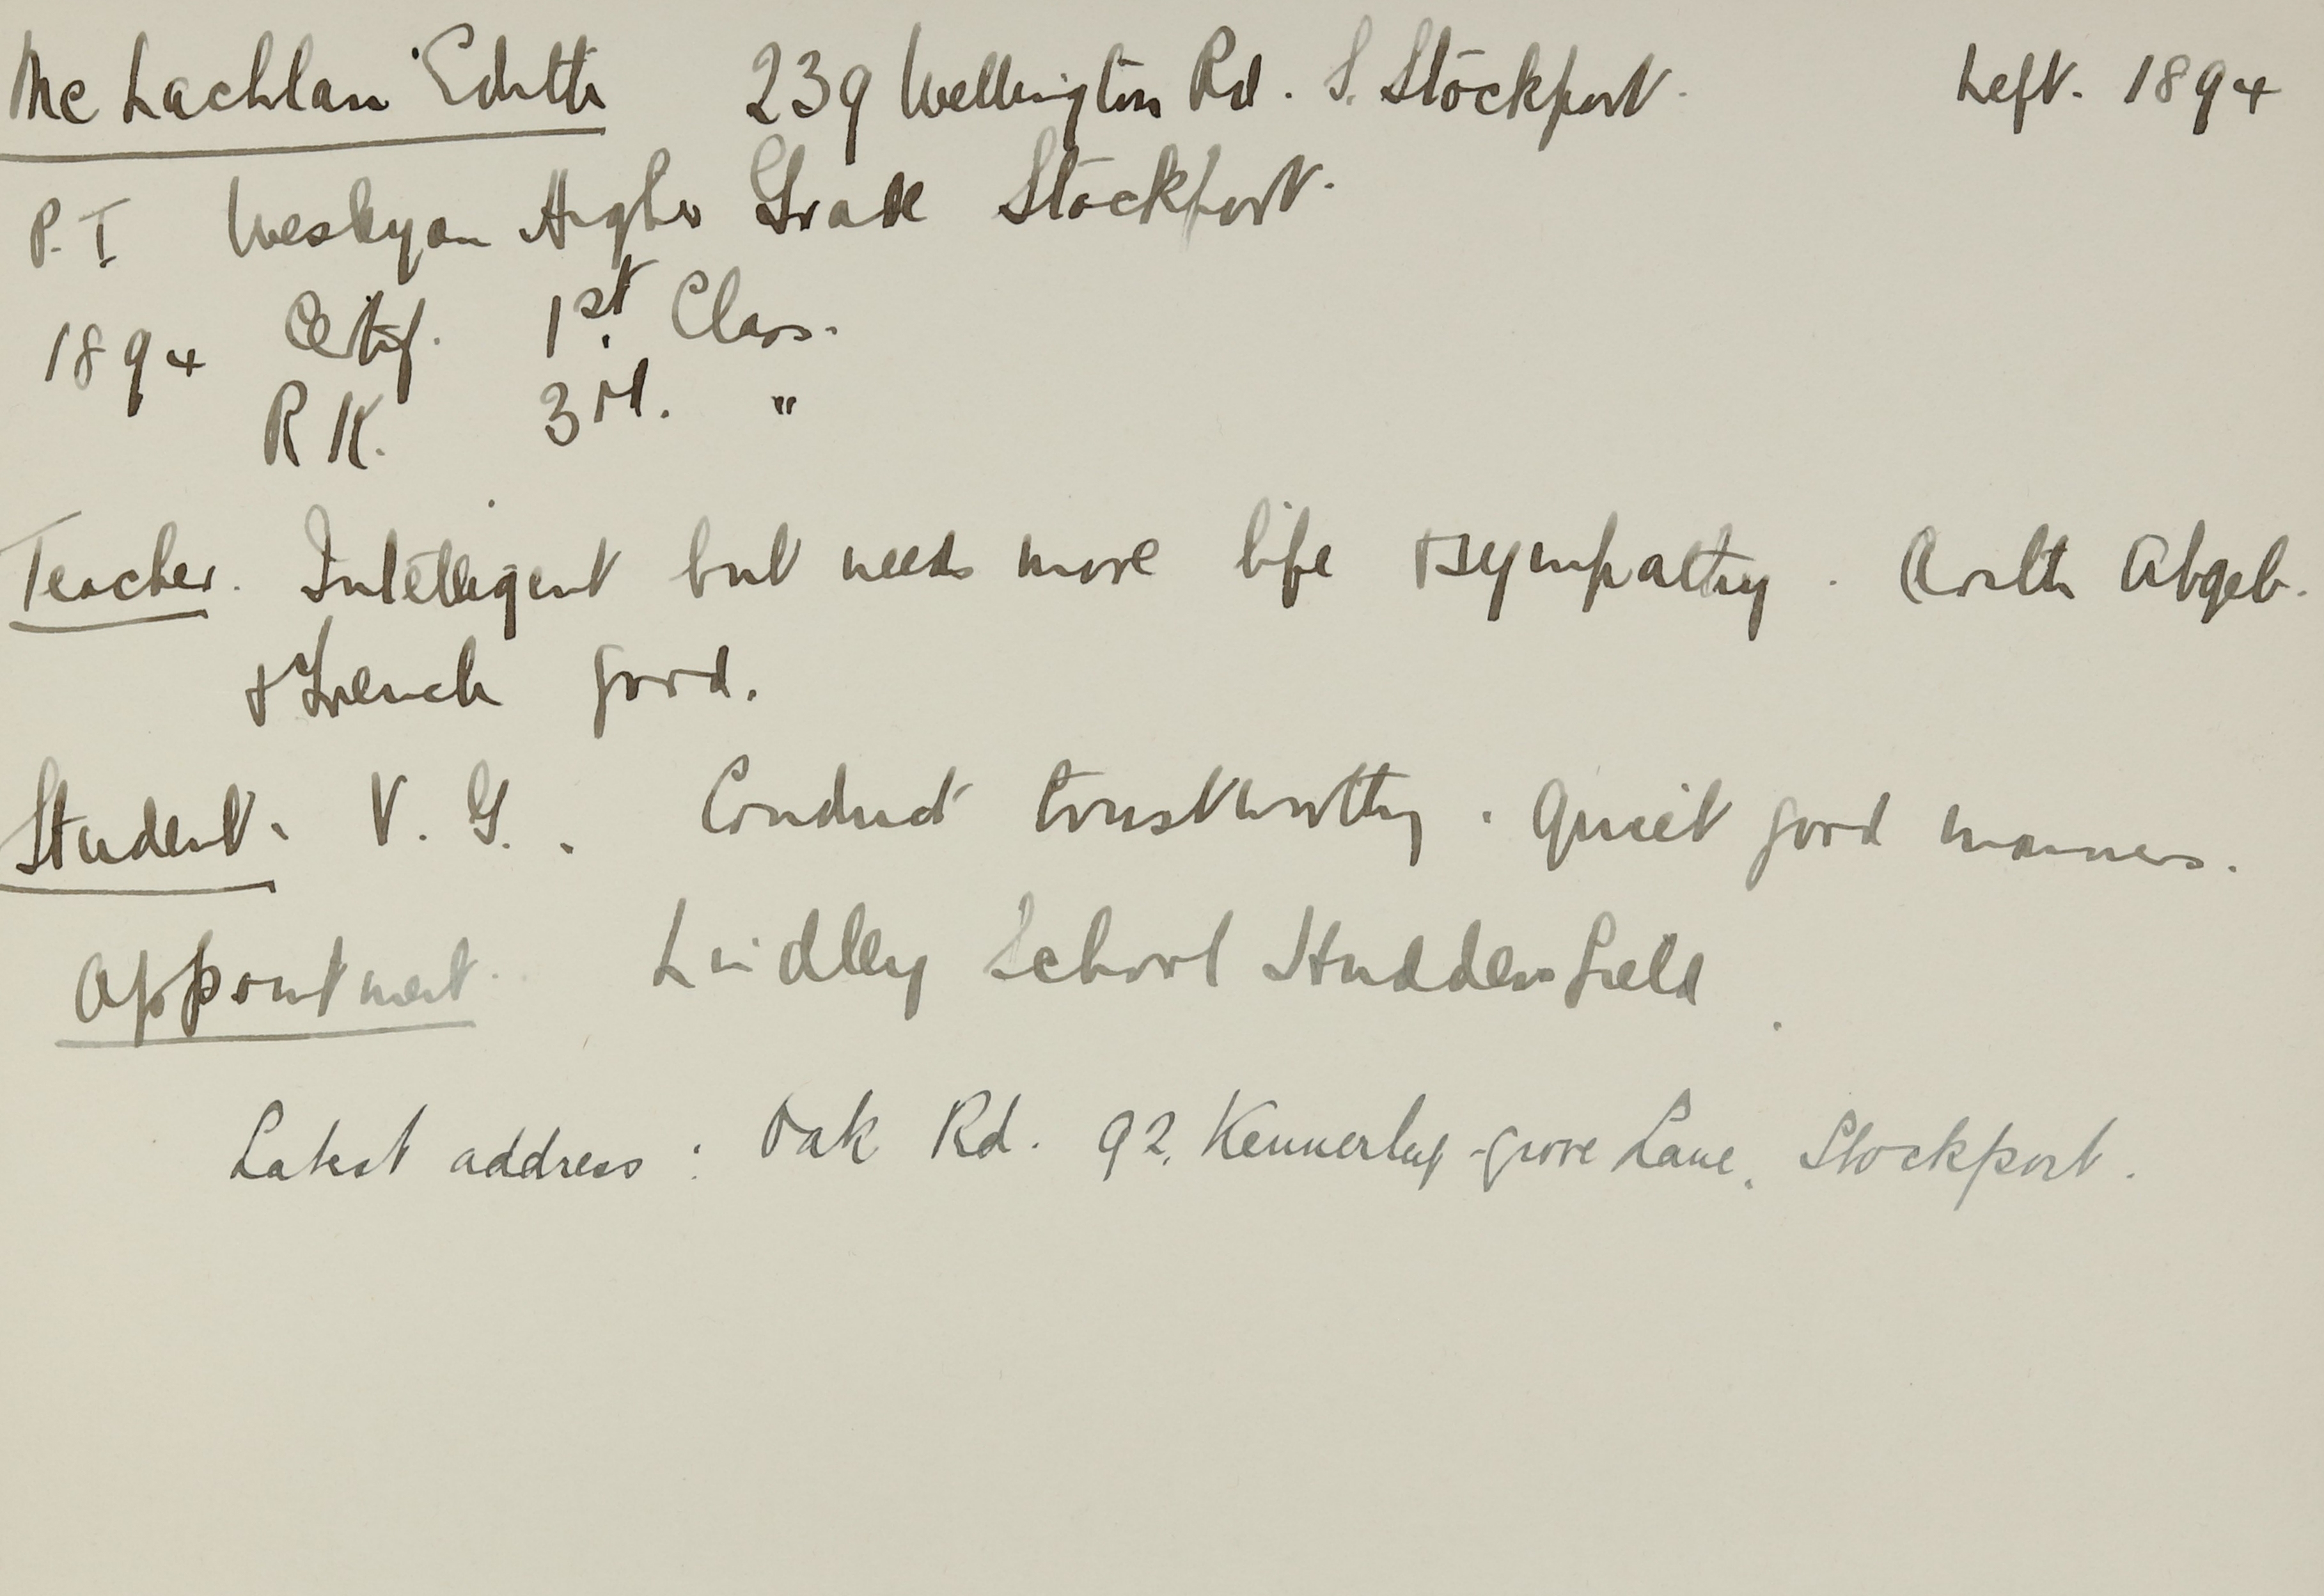 Mc Lachlan Edith 239 Wellington Rd. S. Stockport. Left. 1894
P.T Wesleyan Higher Grade Stockport.
1894 Certif. 1st. Class.
R K. 3rd. "
Teacher. Intelligent but needs more life & sympathy. Arith Algeb.
& French good.
Student. V. G. Conduct trustworthy. Quiet good manners.
Appointment. Lindley School Huddersfield.
Latest address: Oak Rd. 92, Kennerley-grove Lane, Stockport.